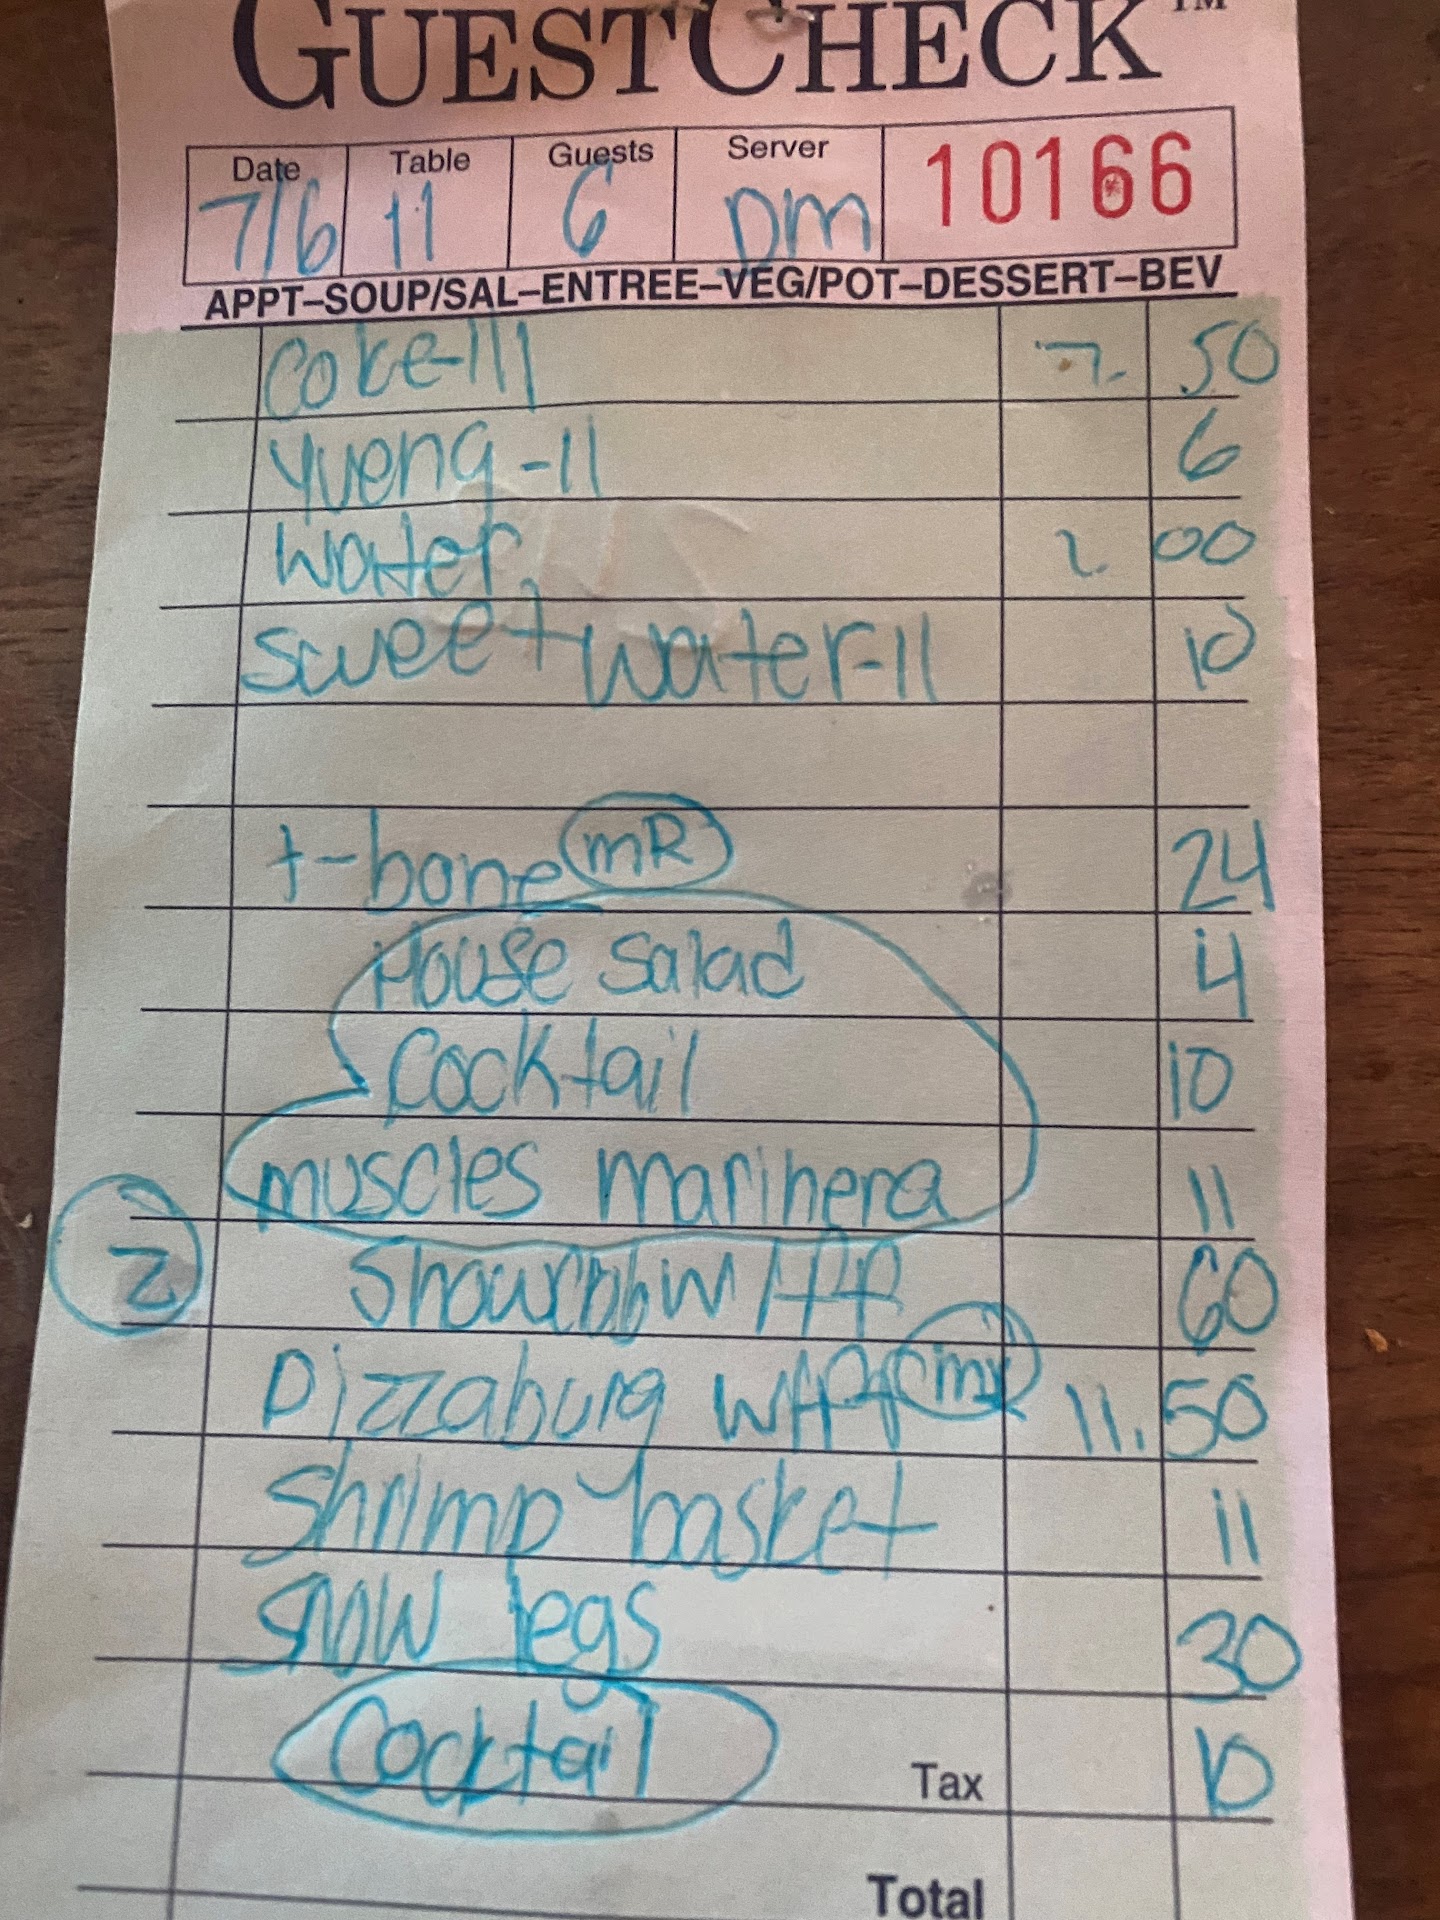 GUESTCHECK™
Date Table Guests Server 10166
7/6 11 6 DM
APPT–SOUP/SAL–ENTREE–VEG/POT–DESSERT–BEV
Coke-111 7. 50
Yueng-11 6
Water 2. 00
Sweetwater-11 10
t-bone MR 24
House Salad 4
Cocktail 10
muscles marinera 11
2 Snowcrab w/ff 60
Pizzaburg w/ff MR 11. 50
Shrimp basket 11
Snow legs 30
Cocktail Tax 10
Total